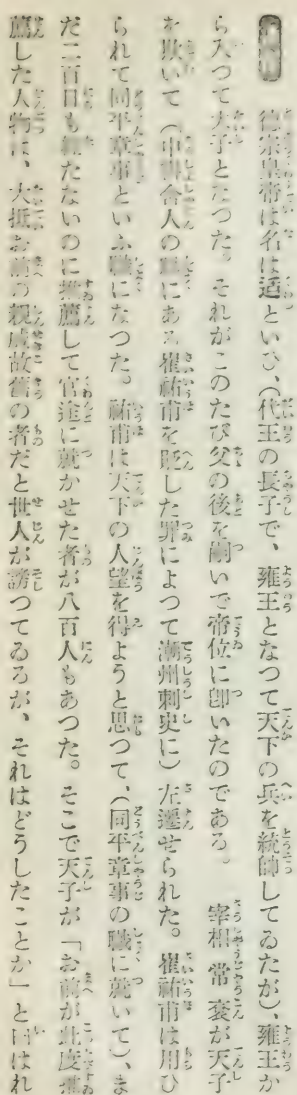 德宗皇帝は名は适といひ、(代王の長子で、雍王となつて天下の兵を統帥してゐたが)、雍王か
ら入つて太子となつた。それがこのたび父の後を嗣いで帝位に卽いたのである。　宰相常袞が天子
を欺いて(中書舍人の職にある崔祐甫を貶した罪によつて潮州刺史に)左遷せられた。崔祐甫は用ひ
られて同平章事といふ職になつた。祐甫は天下の人望を得ようと思つて、(同平章事の職に就いて)、ま
だ二百日も經たないのに推薦して官途に就かせた者が八百人もあつた。そこで天子が「お前が此度推
薦した人物は、大抵お前の親戚故舊の者だと世人が謗つてゐるが、それはどうしたことか」と曰はれ